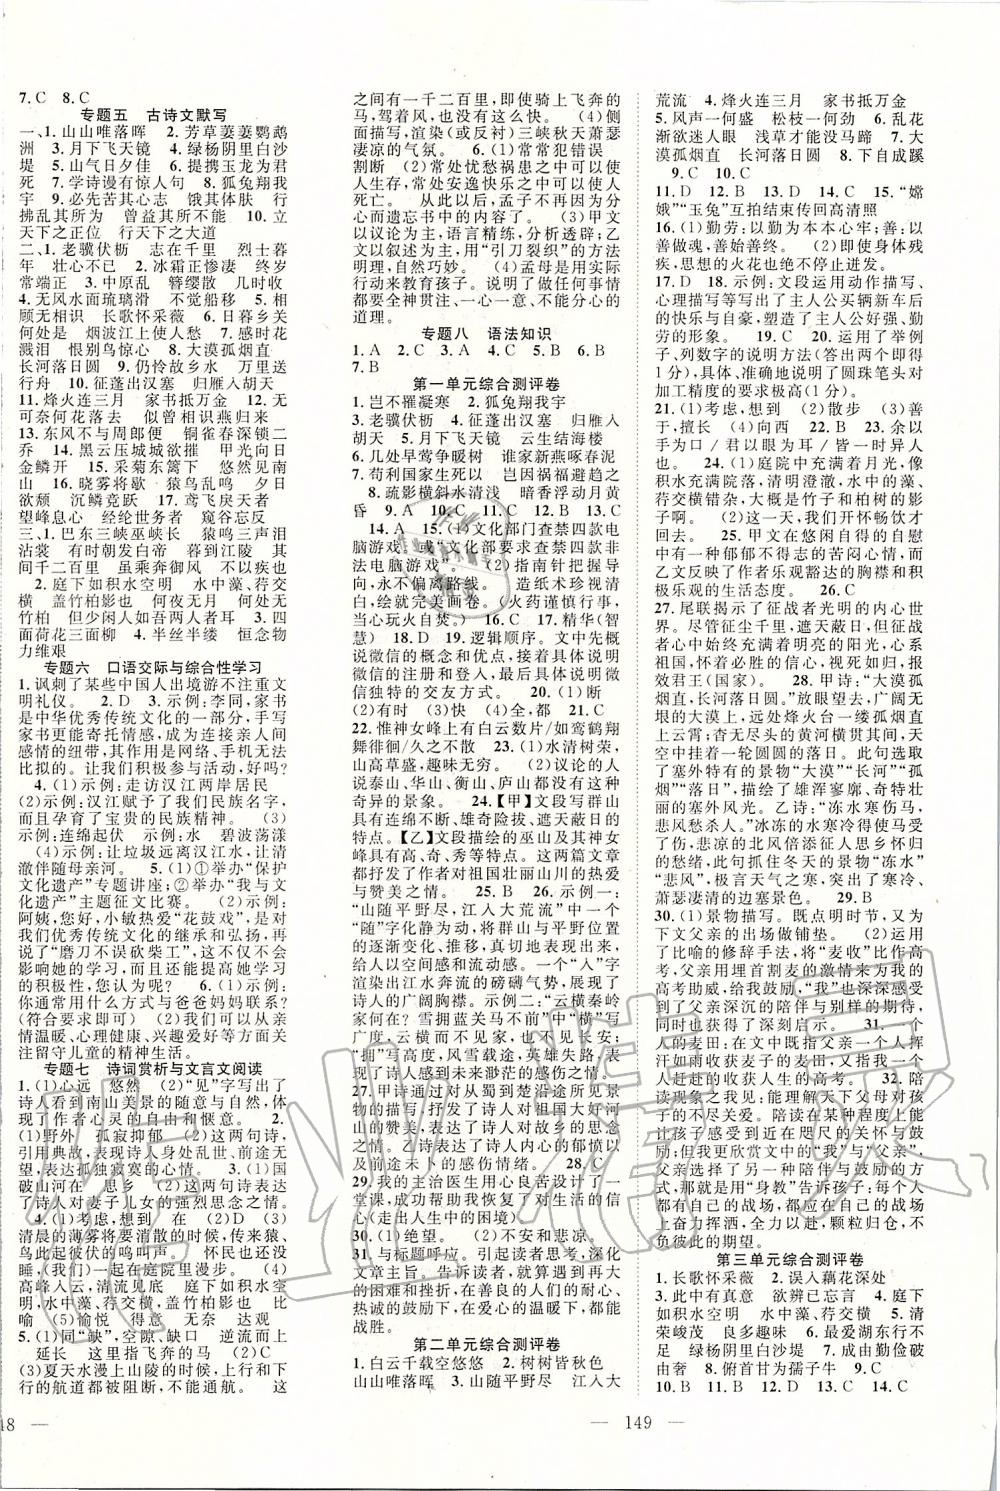 7. C　8. C
专题五　古诗文默写
一、1. 山山唯落晖　2. 芳草萋萋鹦鹉
洲　3. 月下飞天镜　4. 绿杨阴里白沙
堤　5. 山气日夕佳　6. 提携玉龙为君
死　7. 学诗漫有惊人句　8. 狐兔翔我
宇　9. 必先苦其心志　饿其体肤　行
拂乱其所为　曾益其所不能　10. 立
天下之正位　行天下之大道
二、1. 老骥伏枥　志在千里　烈士暮
年　壮心不已　2. 冰霜正惨凄　终岁
常端正　3. 中原乱　簪缨散　几时收
4. 无风水面琉璃滑　不觉船移　5. 相
顾无相识　长歌怀采薇　6. 日暮乡关
何处是　烟波江上使人愁　7. 感时花
溅泪　恨别鸟惊心　8. 大漠孤烟直
长河落日圆　9. 仍怜故乡水　万里送
行舟　10. 征蓬出汉塞　归雁入胡天
11. 烽火连三月　家书抵万金　12. 无
可奈何花落去　似曾相识燕归来
13. 东风不与周郎便　铜雀春深锁二
乔　14. 黑云压城城欲摧　甲光向日
金鳞开　15. 采菊东篱下　悠然见南
山　16. 晓雾将歇　猿鸟乱鸣　夕日
欲颓　沉鳞竞跃　17. 鸢飞戾天者
望峰息心　经纶世务者　窥谷忘反
三、1. 巴东三峡巫峡长　猿鸣三声泪
沾裳　有时朝发白帝　暮到江陵　其
间千二百里　虽乘奔御风　不以疾也
2. 庭下如积水空明　水中藻、荇交
横　盖竹柏影也　何夜无月　何处无
竹柏　但少闲人如吾两人者耳　3. 四
面荷花三面柳　4. 半丝半缕　恒念物
力维艰
专题六　口语交际与综合性学习
1. 讽刺了某些中国人出境游不注重文
明礼仪。　2. D　3. 示例：李同，家书
是中华优秀传统文化的一部分，手写
家书更能寄托情感，成为连接亲人间
感情的纽带，其作用是网络、手机无法
比拟的。让我们积极参与活动吧！
4. (1)示例：走访汉江两岸居民
(2)示例：汉江赋予了我们民族名字，
而且孕育了宝贵的民族精神。　(3)
示例：连绵起伏　示例：水　碧波荡漾
(4)示例：让垃圾远离汉江水，让清
澈伴随母亲河。　5. (1)①举办“保护
文化遗产”专题讲座；②举办“我与文
化遗产”主题征文比赛。　(2)示例：
阿姨，您好，小敏热爱“花鼓戏”，是对
我们优秀传统文化的继承和弘扬，再
说了“磨刀不误砍柴工”，这不仅不会
影响她的学习，而且还会提高她学习
的积极性，您说呢？　6. (1)示例：
你通常用什么方式与爸爸妈妈联系？
(符合要求即可)　(2)社会可以从亲
情温暖、心理健康、兴趣爱好等方面
关注留守儿童的精神生活。
专题七　诗词赏析与文言文阅读
1. (1)心远　悠然　(2)“见”字写出了
诗人看到南山美景的随意与自然，体
现了作者心灵的自由和惬意。　2.
(1)野外　孤寂抑郁　(2)这两句诗，
引用典故，表达诗人身处乱世、前途无
望，表达孤独寂寞的心情。　3. (1)国
破山河在　思乡　(2)这两句诗表达
了诗人对妻子儿女的强烈思念之情。
4. (1)考虑，想到　在　(2)D　(3)
清晨的薄雾将要消散的时候，传来猿、
鸟此起彼伏的鸣叫声。　怀民也还没
睡，我们便一起在庭院里漫步。　(4)
高峰入云，清流见底　庭下如积水空
明，水中藻、荇交横，盖竹柏影也　比
喻　(5)愉悦　得意　无奈　达观
5. (1)同“缺”，空隙、缺口　逆流而上
延长　这里指飞奔的马　(2)C
(3)夏天水漫上山陵的时候，上行和下
行的航道都被阻断，不能通航。　这
之间有一千二百里，即使骑上飞奔的
马，驾着风，也没有这么快。　(4)侧
面描写，渲染(或反衬)三峡秋天萧瑟
凄凉的气氛。　6. (1)常常犯错误
割断　(2)常处忧愁祸患之中可以
使人生存，常处安逸快乐之中可以使人
死亡。　从此以后，孟子不再因为
分心而遗忘书中的内容了。　(3)甲文
以议论为主，语言精练，分析透辟；乙
文以叙述为主，用“引刀裂织”的方法
明理，自然巧妙。　(4)孟母是用实际
行动来教育孩子。说明了做任何事情
都要全神贯注、一心一意、不能分心的
道理。
专题八　语法知识
1. A　2. C　3. C　4. C　5. B　6. B
7. B
第一单元综合测评卷
1. 岂不罹凝寒　2. 狐兔翔我宇
3. 老骥伏枥　4. 征蓬出汉塞　归雁入
胡天　5. 月下飞天镜　云生结海楼
6. 几处早莺争暖树　谁家新燕啄春泥
7. 苟利国家生死以　岂因祸福避趋之
8. 疏影横斜水清浅　暗香浮动月黄
昏　9. B　10. B　11. C　12. C　13. A
14. A　15. (1)文化部门查禁四款电
脑游戏》　或“文化部要求查禁四款非
法电脑游戏”。　(2)指南针把握导
航，永不偏离路线。　造纸术珍视清
白，绘就完美画卷。　(火药谨慎行事，
当心玩火自焚。)　16. B　17. 精华(智
慧)　18. D　19. 逻辑顺序。文中依次
说明微信的概念和优点，使用微信和
微信的注册和登录，微信加好友和
微信独特的交友方式。　20. (1)断
(2)有时　(3)快　(4)全，都　21. C
22. 惟神女峰上有白云数片/如鸾鹤翔
舞徘徊/久之不散　23. (1)水清树荣，
山高草盛，趣味无穷。　(2)议论的人说
泰山、华山、衡山、庐山都没有这
奇异的景象。　24.【甲】文段写群山
具有连绵不断、雄奇险拔、遮天蔽日的
特点。【乙】文段描绘的巫山及其神女
峰具有高、奇、秀等特点。这两篇文章
都抒发了作者对祖国壮丽山川的热爱
与赞美之情。　25. B　26. 示例一：
“山随平野尽，江入大荒流”中，一个
“随”字化静为动，将群山与平野的位
置逐渐变化、推移，真切地表现出来，
给人以空间感和流动感。一个“入”字
渲染出江水奔腾的磅礴气势，展现了
诗人的广阔胸襟。示例二：“云横秦岭
家何在？雪拥蓝关马不前”中“横”写
广度，“拥”写高度，境界雄阔。“云横”
“拥”，风雪交加，英雄失路，体现了
诗人看到未来渺茫的悲伤之情。
27. 甲诗通过对从蜀到楚沿途所见景
物的描写，抒发了诗人对祖国大好河
山的赞美，表达了诗人对故乡的思念
之情。乙诗抒发了诗人内心的郁愤以
及前途未卜的感伤情绪。　28. C
29. 我的主治医生用心良苦设计了一
课，成功帮助我恢复了对生活的信
心(走出人生中的困境)
30. (1)惶恐　(2)不安和悲凉。
31. 与标题呼应。引起读者阅读兴趣。深化
文章主题，告诉读者，就算面对生活的
困难和挫折，有身边人真心的关怀、
热诚的鼓励，生命在爱的温暖下，都能
战胜。
第二单元综合测评卷
1. 白云千载空悠悠　2. 树树皆秋色
山山唯落晖　3. 山随平野尽　江入大
荒流　4. 烽火连三月　家书抵万金
5. 风声一何盛　松枝一何劲　6. 乱花
渐欲迷人眼　浅草才能没马蹄　7. 大
漠孤烟直　长河落日圆　8. 下自成蹊
9. C　10. C
11. D　12. B　13. D　14. C　15. “嫦
娥”“玉兔”互拍结束传回高清照
16. (1)勤劳：以勤为本本心牢；善：以
善做魂，善始善终。　(2)即使身体残
疾，思想的火花也绝不停止迸发。
17. D　18. 示例：文段运用动作描写、
心理描写等写出了主人公买辆新车后
的快乐与自豪，塑造了主人公好强、勤
劳的形象。　19. C　20. 运用了举例
子、列数字的说明方法(答出两个即得
1分)，具体、准确地说明了圆珠笔头对
加工精度的要求极高(1分)
21. (1)考虑，想到　(2)散步　(3)善
于，擅长　(4)向西　22. D　23. 余以
手为口 / 君以眼为耳 / 皆一时异人
也。　24. (1)庭院中充满着月光，像
积水充满院落，清明澄澈，水中的藻、
荇交横错杂，原来是竹子和柏树的影
子啊。　(2)这一天，我们开怀畅饮才
回去。　25. 甲文在悠闲自在的自慰
中有一种郁郁不得志的苦闷心情，而
乙文反映了作者乐观豁达的胸襟和积
极乐观的生活态度。　26. C
27. 尾联揭示了征战者光明的内心世
界。尽管征伐无期、归乡无日，但战士
心中始终充满着必胜的信心，为了家
乡、祖国，甚至视死如归，希望早日报效
君王(国家)。　28. 甲诗：“大漠孤烟
直，长河落日圆。”放眼望去，广阔无
垠的大漠上，远处烽火台一缕孤烟直
上云霄；杳无尽头的黄河横贯其间，天
空中挂着一轮圆圆的落日。此句选取
了塞外特有的景物“大漠”“长河”“孤
烟”“落日”，描绘了雄浑寥廓、奇特壮
丽的塞外风光。　乙诗：“冻水寒伤马，
悲风愁杀人。”冰冻的水寒冷得使马受
伤了，悲凉的北风倍添征人思乡怀归
的愁绪，此句抓住冬天的景物“冻水”
“悲风”，极言天气之寒，突出了寒冷、
萧瑟凄清的边塞景色。　29. B
30. (1)景物描写。既点明时节，又为
下文父亲的出场做铺垫。　(2)运用
了比喻的修辞手法，将“麦收”比作高
考，父亲用埋首割麦的激情来为我的
高考助威呐喊，“我”也深深感受
到了父亲深沉的陪伴与别样的期待，
同时也获得了深刻启示。　31. 一个人
的麦田，因为有了父亲的参与，一个人挥
汗如雨地收获；也指“我”一个人
迎接属于自己人生的高考。　32. 陪
读现象之我见：能理解父母对孩子的
关爱之情。陪读在某种程度上能
让孩子感受到父母的关怀与鼓
励。但我更欣赏文中的“我”与“父亲”，
父亲采用了另一种陪伴与鼓励的方
式，就是用“身教”作无声的诉说，每个
人都有自己的战场，都应在自己的战场
上奋力挥洒，全力以赴，颗粒归仓，不
负彼此的期望。
第三单元综合测评卷
1. 长歌怀采薇　2. 误入藕花深处
3. 此中有真意　欲辨已忘言　4. 庭下
如积水空明　水中藻、荇交横　5. 清
荣峻茂　良多趣味　6. 最爱湖东行不
足　绿杨阴里白沙堤　7. 成由勤俭破
由奢　8. 俯首甘为孺子牛　9. C
10. B　11. D　12. D　13. C　14. C
48 —
— 149 —